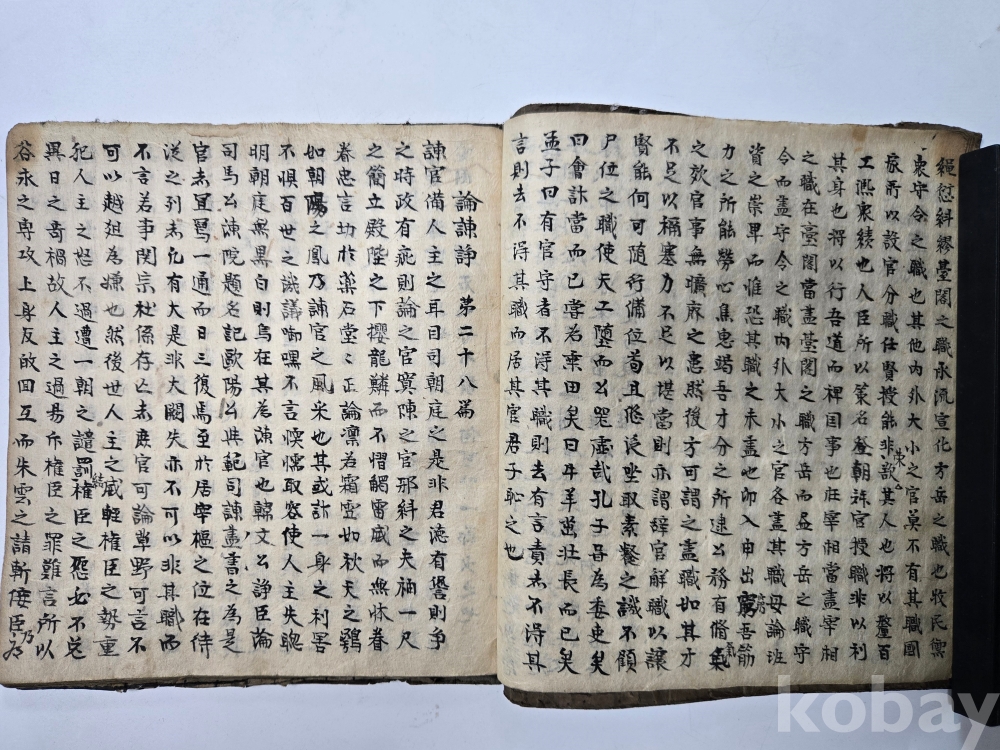 繩愆糾繆臺閣之職也承流宣化方岳之職也牧民禦
衆守令之職也其他內外大小之官莫不有其職國
家所以設官分職任賢授能非敢其人也將以釐百
工熙衆績也人臣所以策名登朝旅官授職非以利
其身也將以行吾道而裨國事也在宰相當盡宰相
之職在臺閣當盡臺閣之職方岳而盡方岳之職守
令而盡守令之職內外大小之官各盡其職毋論班
資之崇卑而惟恐其職之未盡也卯入申出窮吾筋
力之所能勞心焦思竭吾才分之所逮公務有脩
之效官事無曠廢之患然後方可謂之盡職如其才
不足以稱塞力不足以堪當則亦謂辞官解職以讓
賢能何可隨行備位苟且依違坐取素餐之譏不顧
尸位之職使天工墮而公器虛哉孔子昔為委吏矣
曰會計當而已嘗為乘田矣曰牛羊茁壯長而已矣
孟子曰有官守者不得其職則去有言責者不得其
言則去不得其職而居其官君子恥之也
論諫諍 第二十八篇
諫官備人主之耳目司朝庭之是非君德有愆則爭
之時政有疵則論之官寔陳之官邪糾之夫袖一尺
之簡立殿陛之下攖龍鱗而不慴觸雷威而無怵眷
眷忠言切於藥石堂〻正論凛若霜雪如秋天之鶚
如朝陽之鳳乃諫官之風采也其或計一身之利害
不恨百世之譏議喑嘿不言愞懦取容使人主失聰
明朝庭無黑白則烏在其為諫官也韓文公諍臣論
司馬公諫院題名記歐陽公與范司諫書書之為是
官者宜寫一通而日三復焉至於居宰樞之位在侍
從之列者凡有大是非大闕失亦不可以非其職而
不言若事関宗社係存亡者庶官可論草野可言不
可以越俎為嫌也然後世人主之威輕權臣之勢重
犯人主之怒不過遭一朝之譴罰結權臣之怨必不免
異日之奇禍故人主之過易亦權臣之罪難言所以
谷永之專攻上身反啟回互而朱雲之請斬佞臣乃